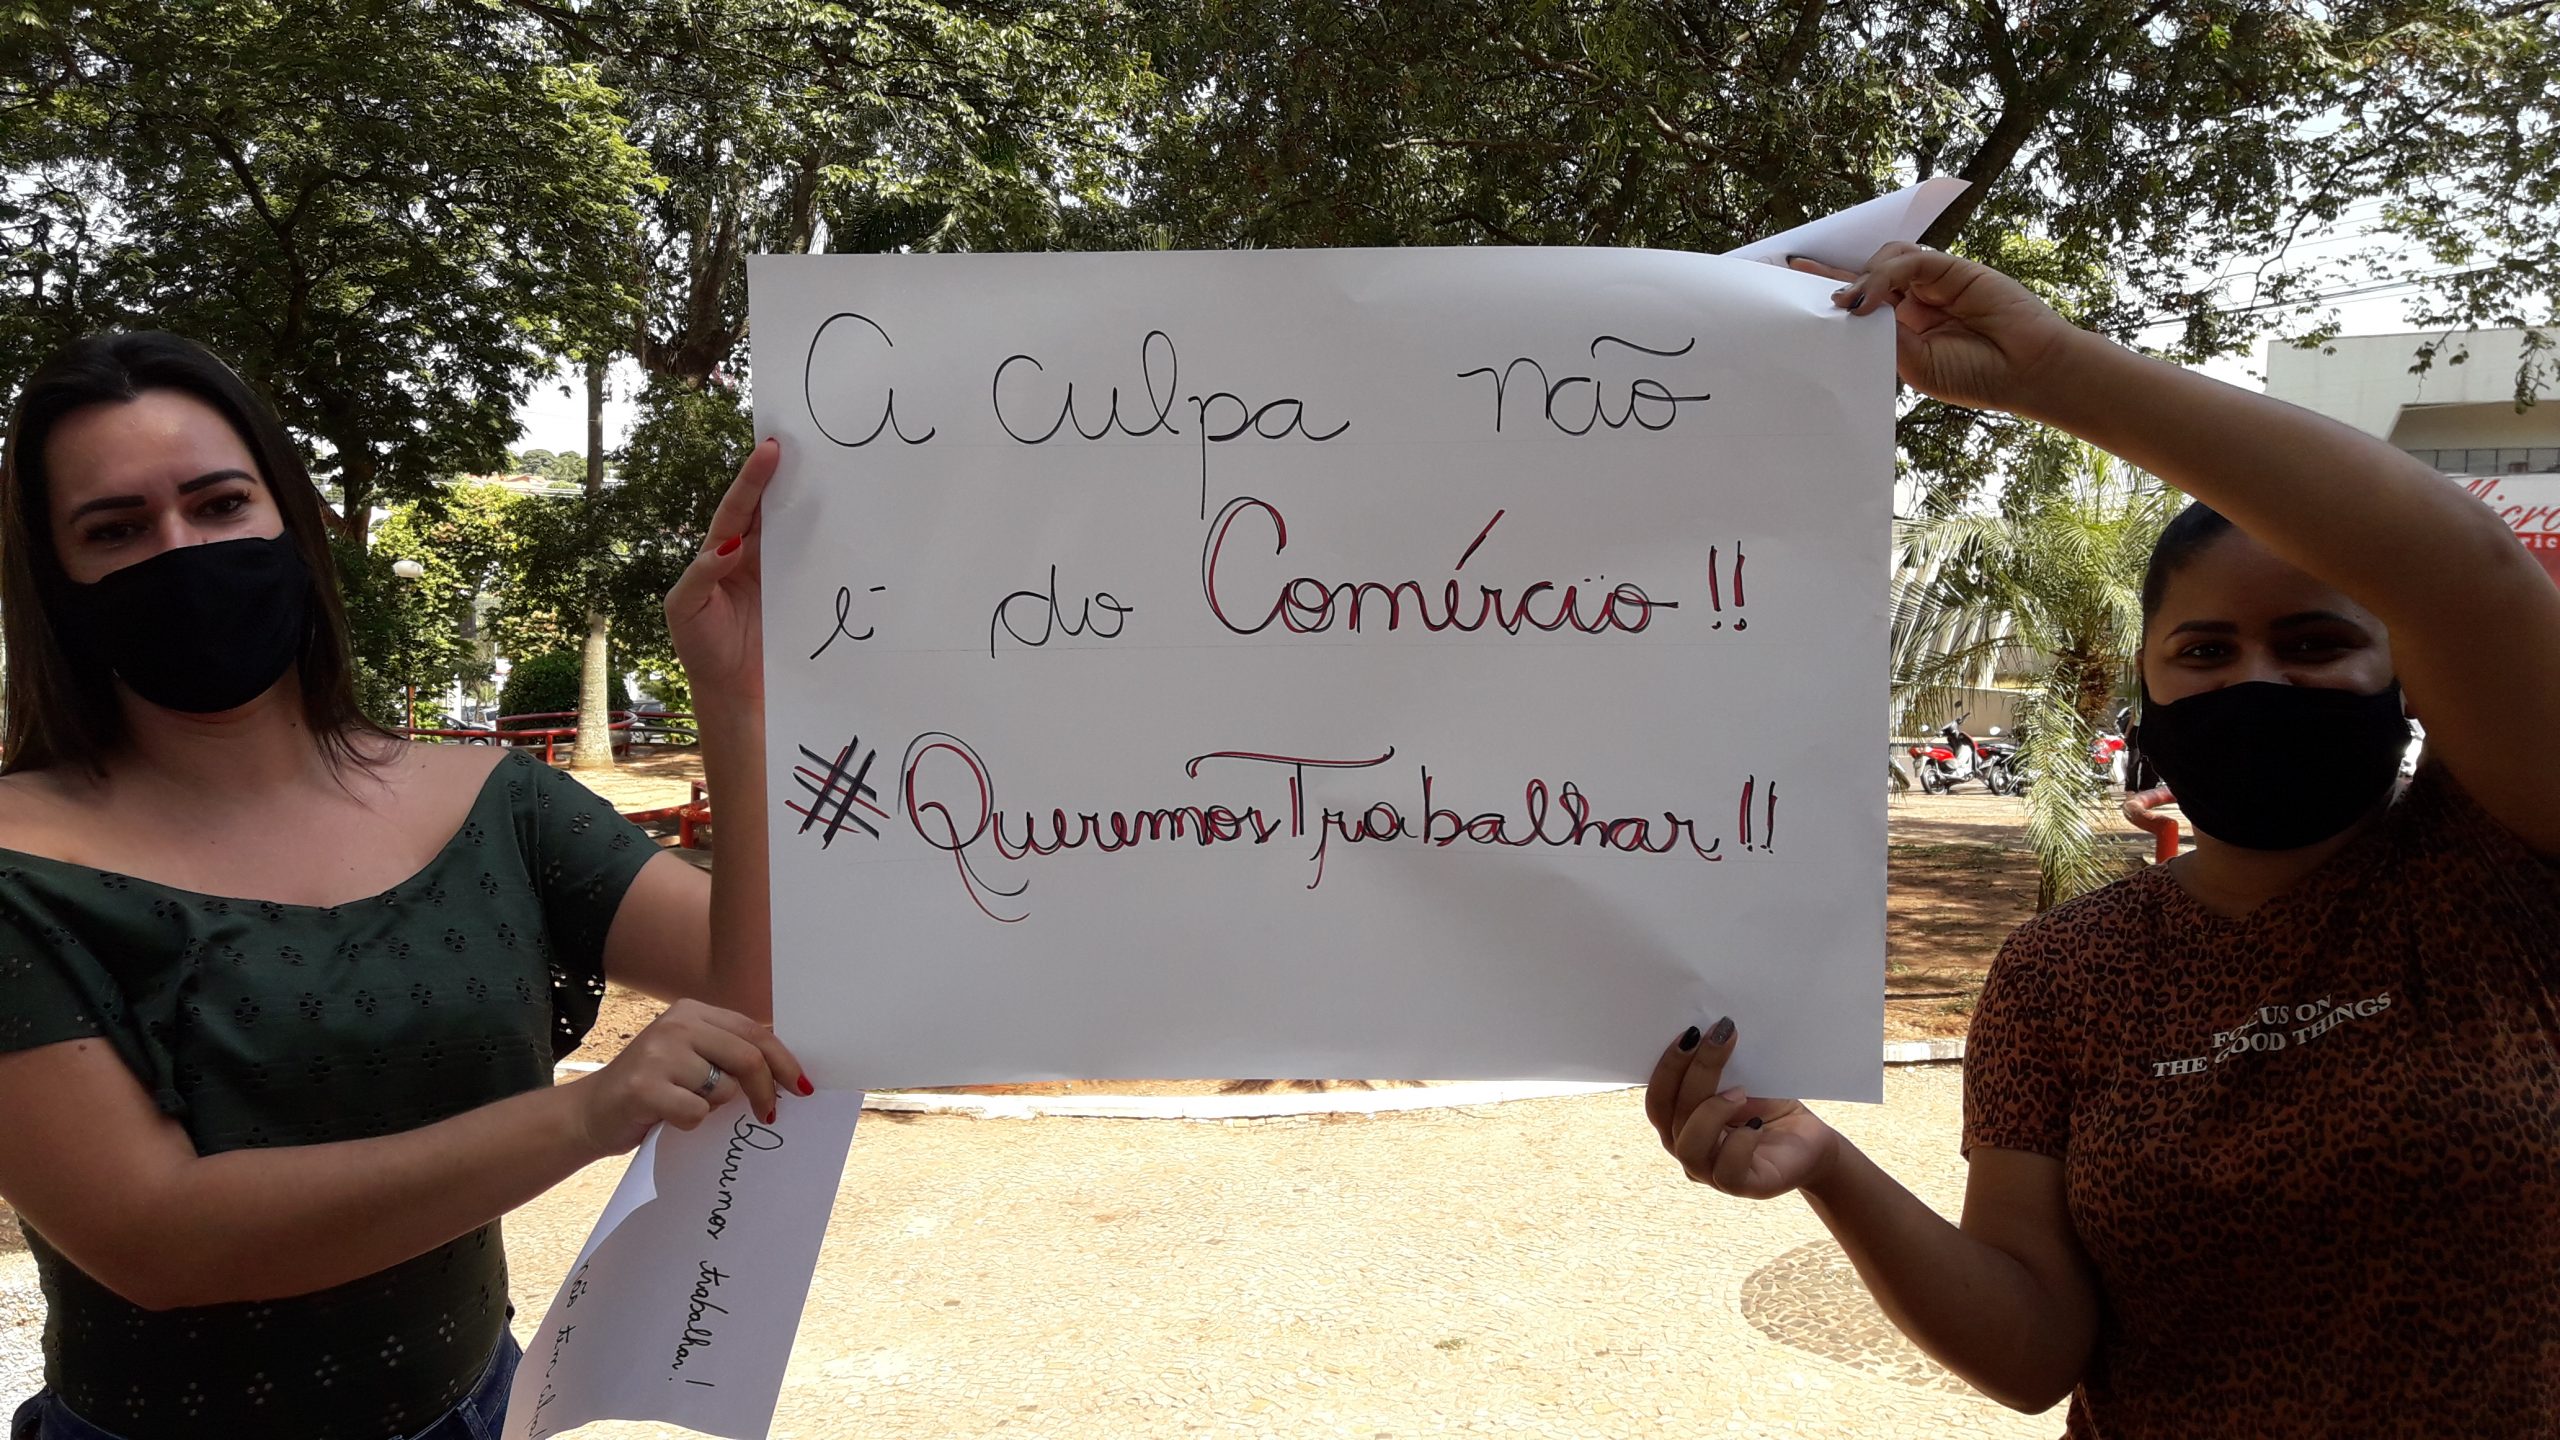 A culpa não
é do Comércio!!
#QueremosTrabalhar!!
Queremos trabalhar!
não tem culpa
FOCUS ON
THE GOOD THINGS
Micro